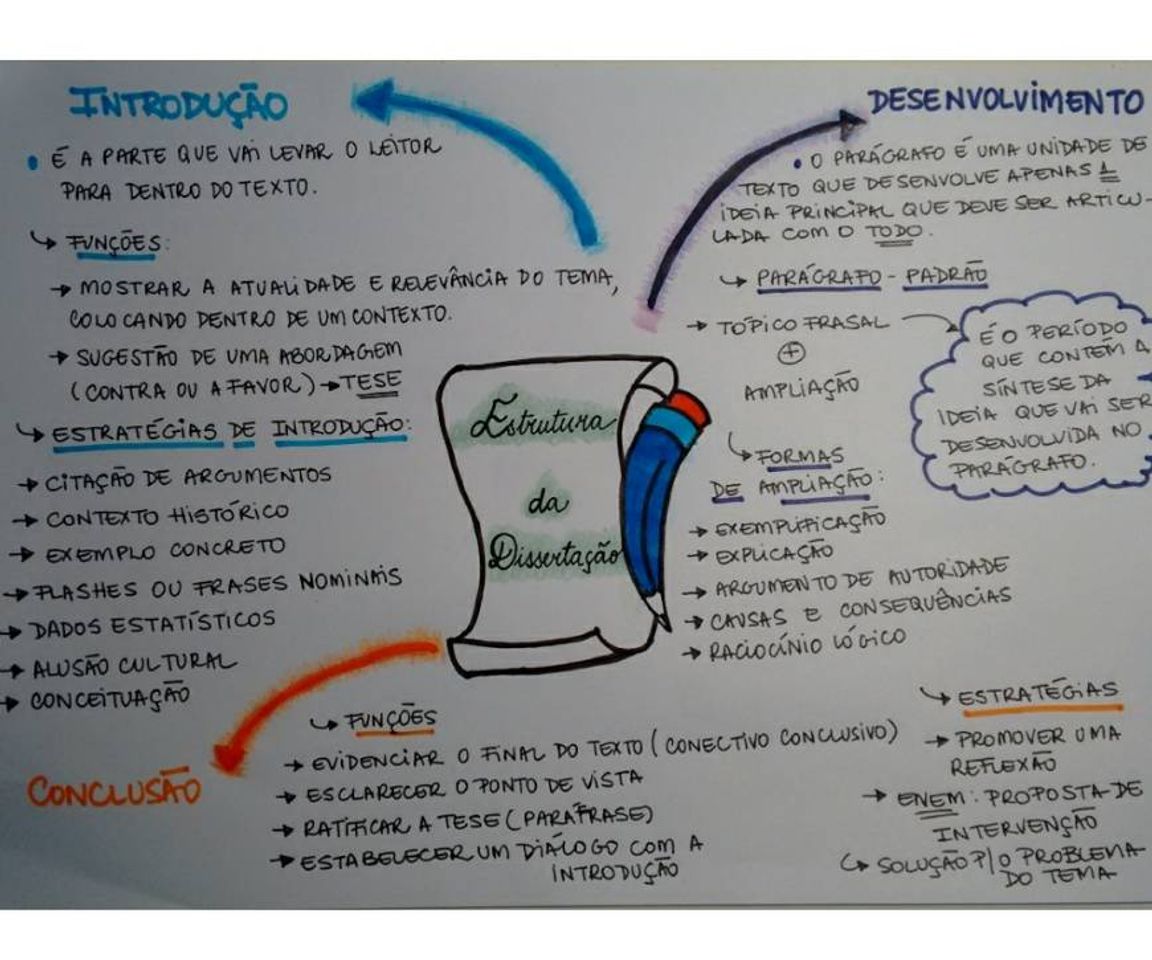 INTRODUÇÃO
• É A PARTE QUE VAI LEVAR O LEITOR
PARA DENTRO DO TEXTO.
↳ FUNÇÕES:
→ MOSTRAR A ATUALIDADE E RELEVÂNCIA DO TEMA,
COLOCANDO DENTRO DE UM CONTEXTO.
→ SUGESTÃO DE UMA ABORDAGEM
(CONTRA OU A FAVOR) → TESE
↳ ESTRATÉGIAS DE INTRODUÇÃO:
→ CITAÇÃO DE ARGUMENTOS
→ CONTEXTO HISTÓRICO
→ EXEMPLO CONCRETO
→ FLASHES OU FRASES NOMINAIS
→ DADOS ESTATÍSTICOS
→ ALUSÃO CULTURAL
→ CONCEITUAÇÃO
Estrutura
da
Dissertação
DESENVOLVIMENTO
• O PARÁGRAFO É UMA UNIDADE DE
TEXTO QUE DESENVOLVE APENAS 1
IDEIA PRINCIPAL QUE DEVE SER ARTICU-
LADA COM O TODO.
↳ PARÁGRAFO - PADRÃO
→ TÓPICO FRASAL
+
AMPLIAÇÃO
É O PERÍODO
QUE CONTÉM A
SÍNTESE DA
IDEIA QUE VAI SER
DESENVOLVIDA NO
PARÁGRAFO.
↳ FORMAS
DE AMPLIAÇÃO:
→ EXEMPLIFICAÇÃO
→ EXPLICAÇÃO
→ ARGUMENTO DE AUTORIDADE
→ CAUSAS E CONSEQUÊNCIAS
→ RACIOCÍNIO LÓGICO
CONCLUSÃO
↳ FUNÇÕES
→ EVIDENCIAR O FINAL DO TEXTO (CONECTIVO CONCLUSIVO)
→ ESCLARECER O PONTO DE VISTA
→ RATIFICAR A TESE (PARÁFRASE)
→ ESTABELECER UM DIÁLOGO COM A
INTRODUÇÃO
↳ ESTRATÉGIAS
→ PROMOVER UMA
REFLEXÃO
→ ENEM: PROPOSTA DE
INTERVENÇÃO
↳ SOLUÇÃO P/ O PROBLEMA
DO TEMA